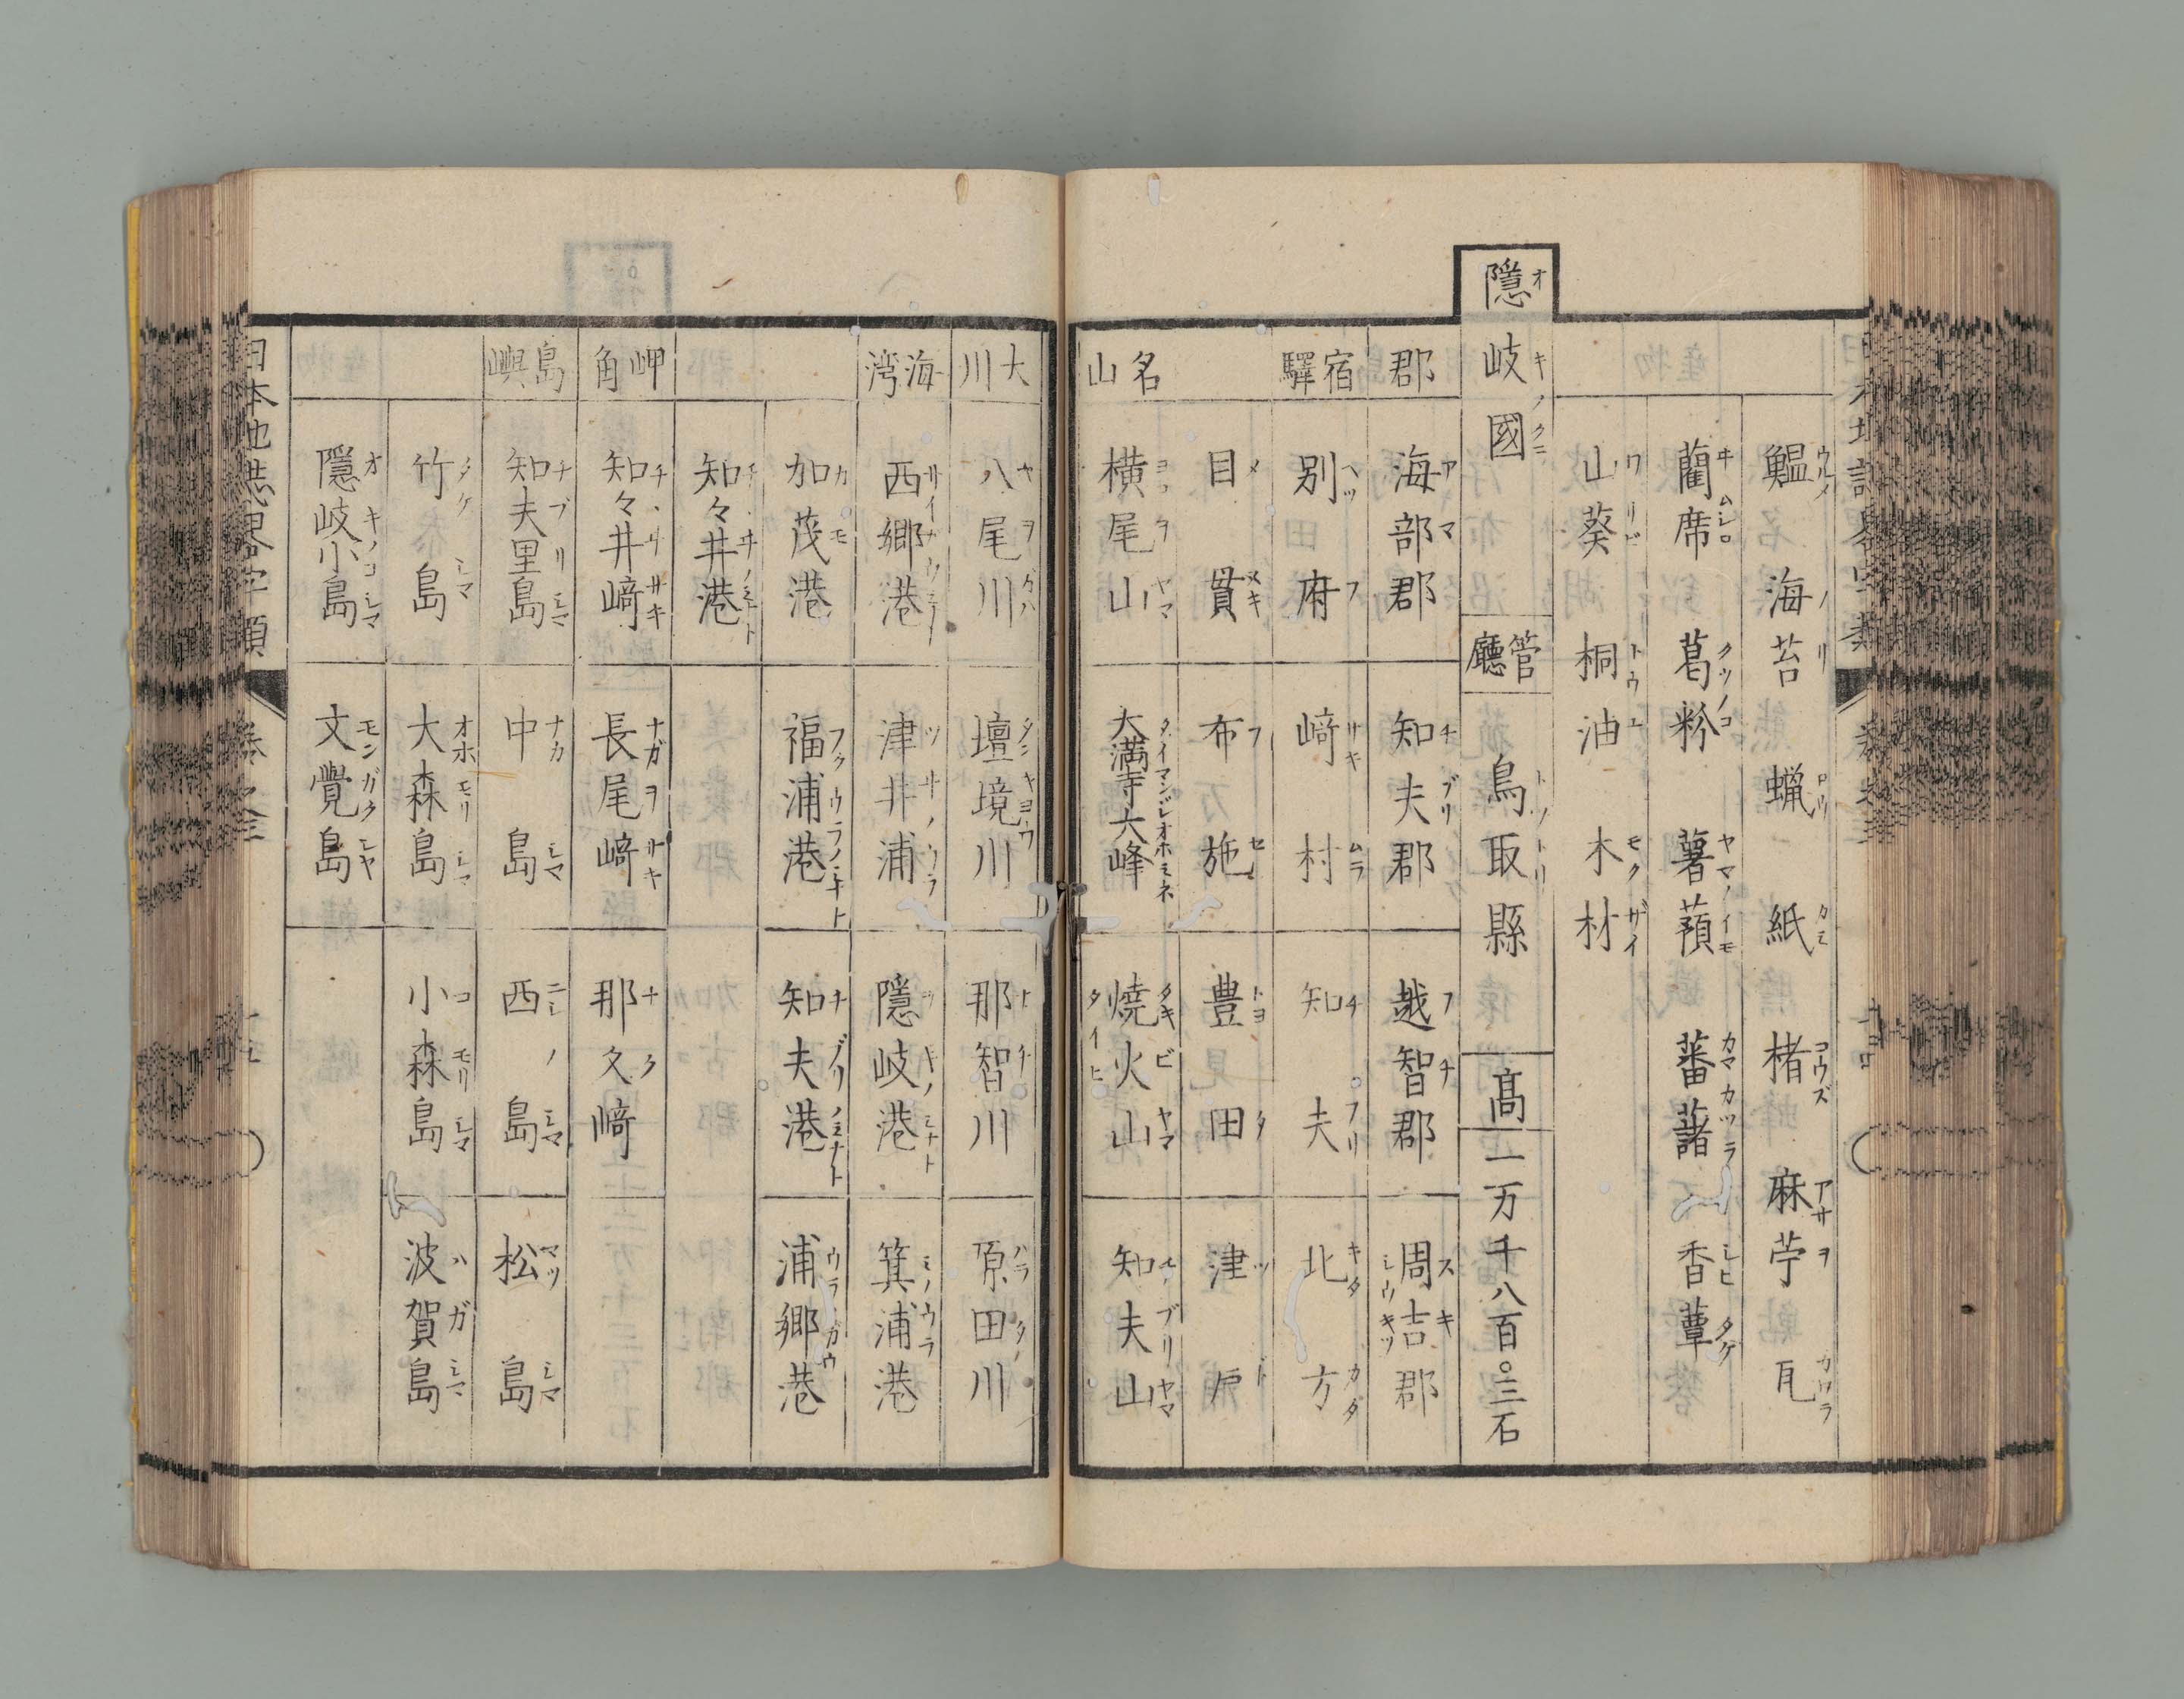 鰮 海苔 蝋 紙 楮 麻苧 瓦
藺席 葛粉 薯蕷 蕃藷 香蕈
山葵 桐油 木材
隱岐國 管廳 鳥取縣 高 一万千八百〇三石
郡 海部郡 知夫郡 越智郡 周吉郡
宿驛 別府 﨑村 知夫 北方
目貫 布施 豊田 津戸
名山 横尾山 大満寺大峰 焼火山 知夫山
大川 八尾川 壇境川 那智川 原田川
海湾 西郷港 津井浦 隱岐港 箕浦港
加茂港 福浦港 知夫港 浦郷港
知々井港
岬角 知々井﨑 長尾﨑 那久﨑
島嶼 知夫里島 中島 西ノ島 松島
竹島 大森島 小森島 波賀島
隱岐小島 文覺島